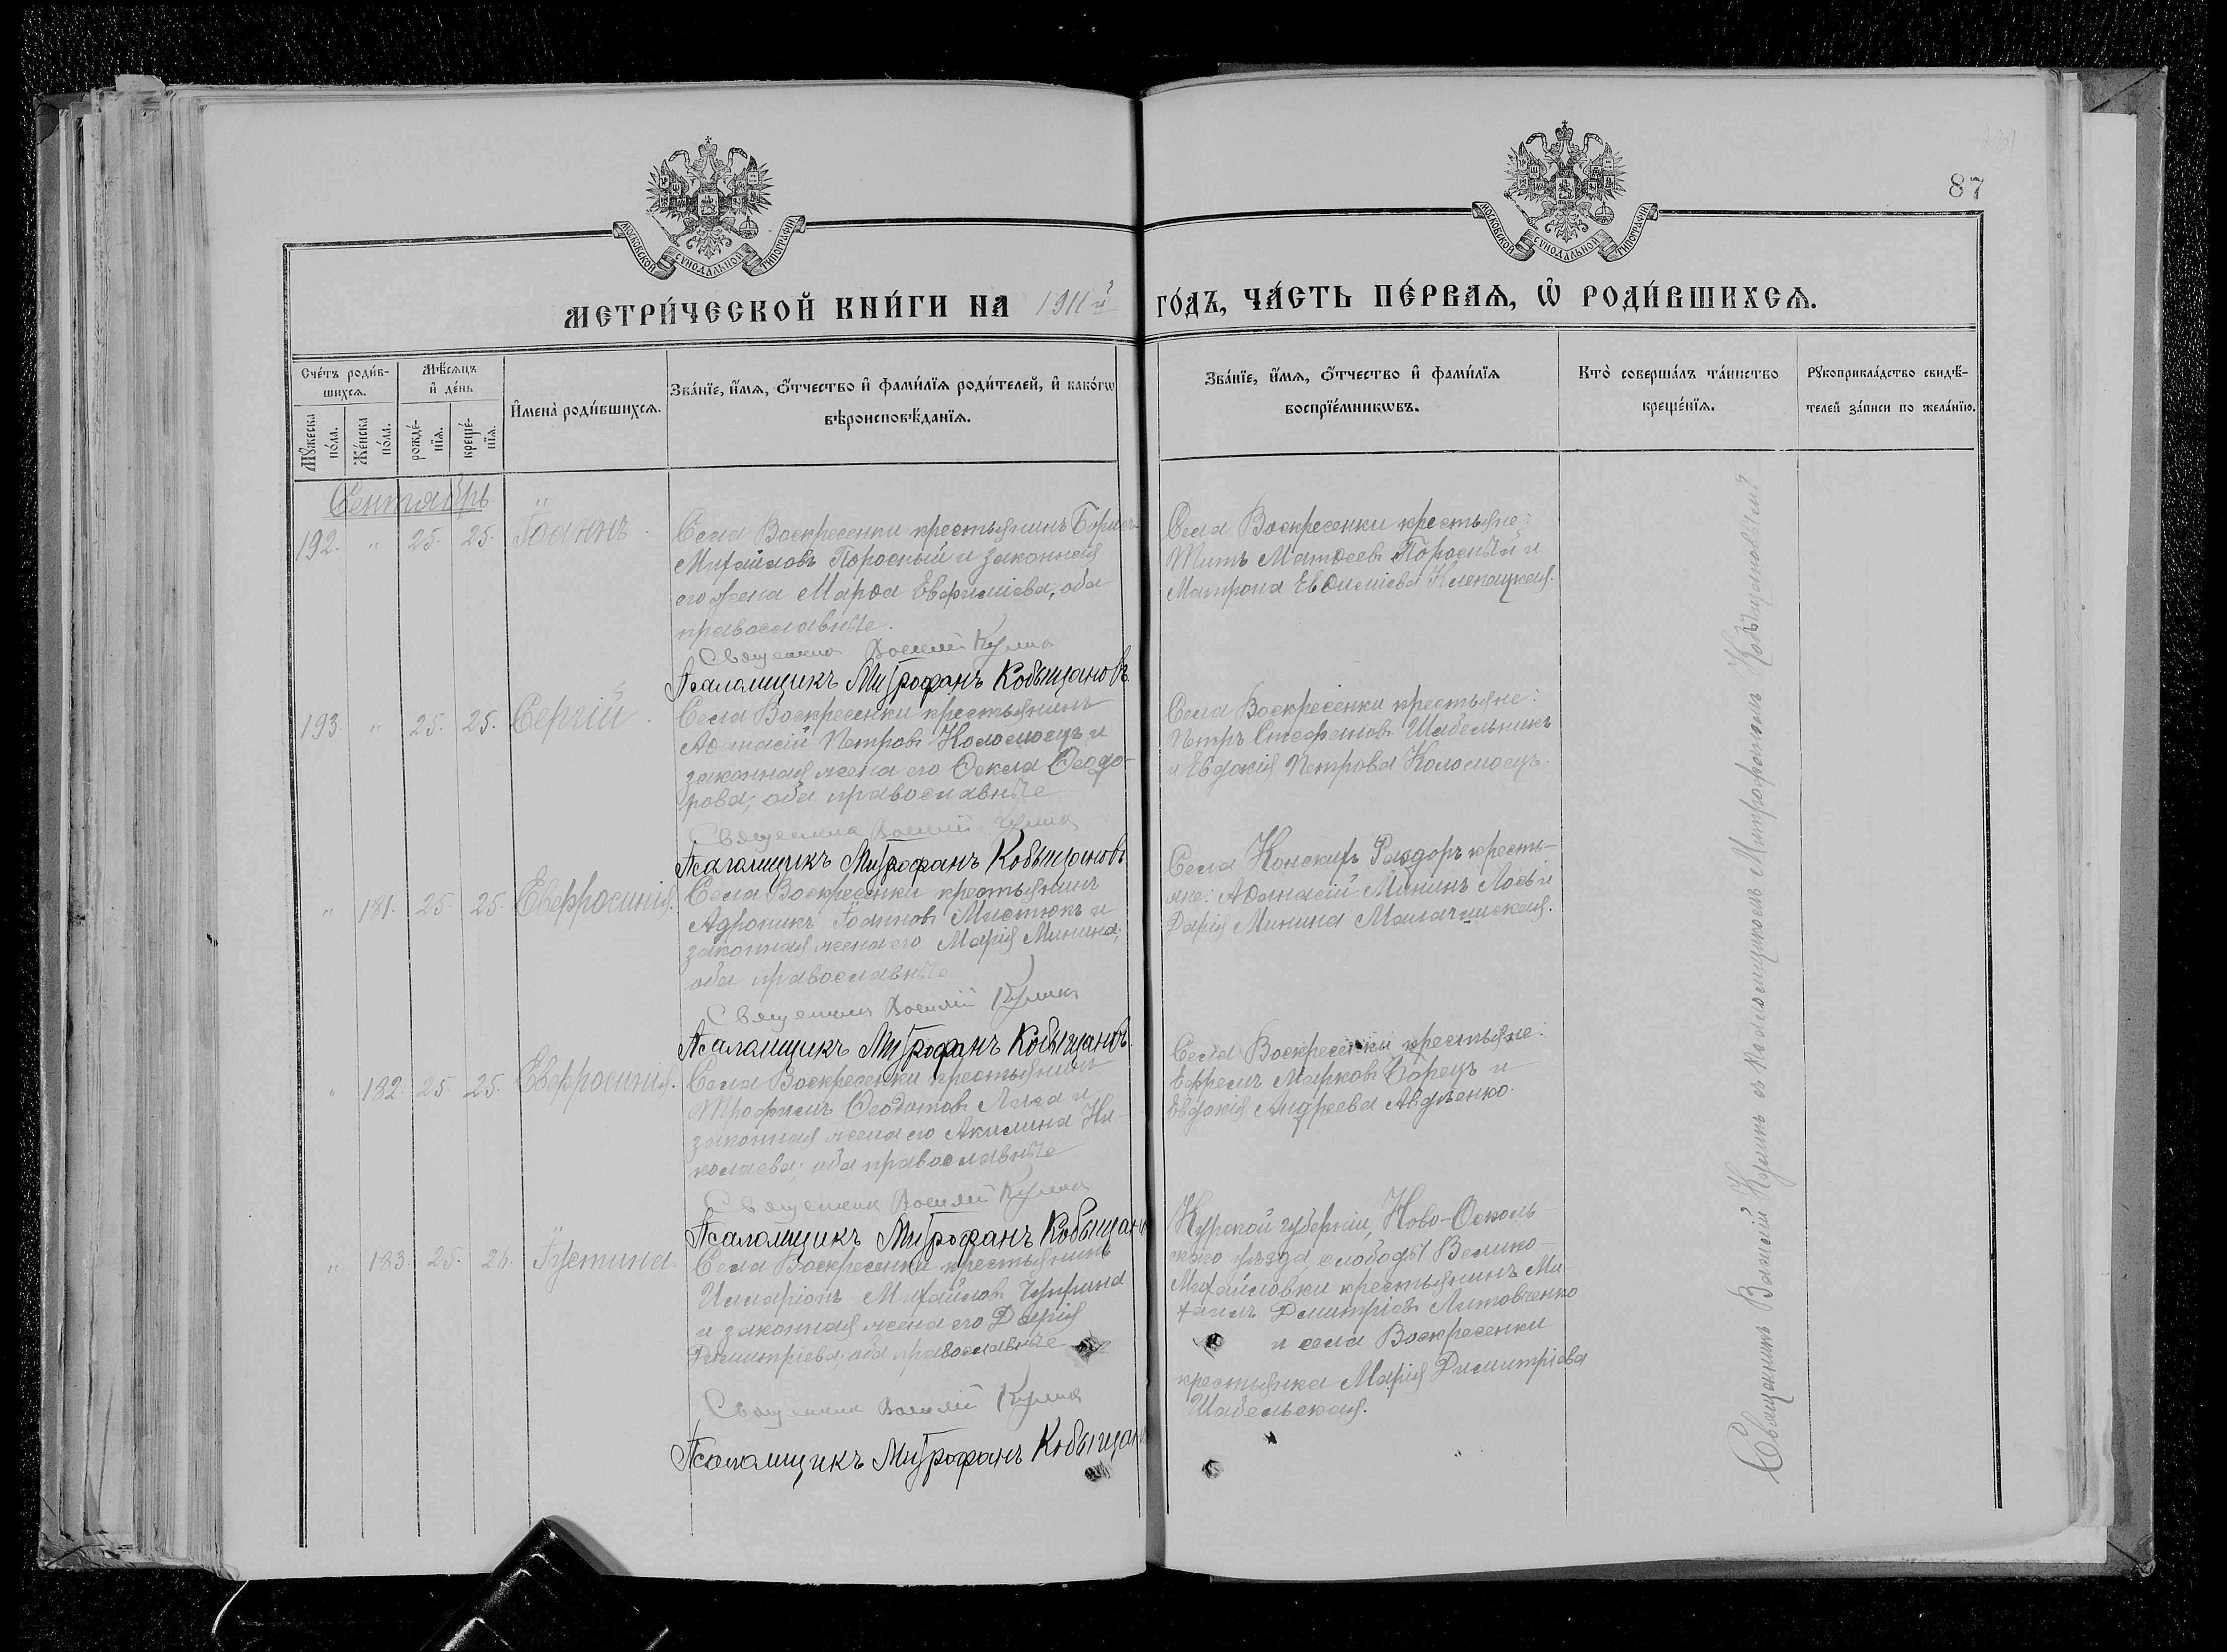 87
МОСКОВСКОЙ СѴНОДАЛЬНОЙ ТИПОГРАФІИ
МОСКОВСКОЙ СѴНОДАЛЬНОЙ ТИПОГРАФІИ
МЕТРИ́ЧЕСКОЙ КНИ́ГИ НА 1911й ГО́ДЪ, ЧА́СТЬ ПЕ́РВАѦ, Ѡ҆ РОДИ́ВШИХСѦ.
Сче́тъ роди́в-
шихсѧ.
Мꙋ́жеска по́ла.
Же́нска по́ла.
Мѣ́сѧцъ
и҆ де́нь
рожде́-
нїѧ.
креще́-
нїѧ.
И҆мена̀ роди́вшихсѧ.
Зва́нїе, и҆́мѧ, ѻ҆́тчество и҆ фами́лїѧ роди́телей, и҆ како́гѡ
вѣроисповѣ́данїѧ.
Зва́нїе, и҆́мѧ, ѻ҆́тчество и҆ фами́лїѧ
воспрїе́мникѡвъ.
Кто̀ соверша́лъ та́инство
креще́нїѧ.
Рꙋкоприкла́дство свидѣ́-
телей за́писи по жела́нїю.
Сентябрь
192. " 25. 25. Іоаннъ.
Села Воскресенки крестьянинъ Борисъ
Михайловъ Поросный и законная
его жена Марѳа Евфиміева, оба
православные.
Священникъ Василій Куликъ
Псаломщикъ Митрофанъ Кобыщановъ.
Села Воскресенки крестьяне:
Титъ Матѳеевъ Поросный и
Матрона Евѳиміева
193. " 25. 25. Сергій.
Села Воскресенки крестьянинъ
Аѳанасій Петровъ Коломоецъ и
законная жена его Ѳекла Ѳеодо-
рова; оба православные
Священникъ Василій Куликъ
Псаломщикъ Митрофанъ Кобыщановъ
Села Воскресенки крестьяне:
Петръ Стефановъ Шабельникъ
и Евдокія Петрова Коломоецъ.
" 181. 25. 25. Евфросинія.
Села Воскресенки крестьянинъ
Адроникъ Іоанновъ Мистюкъ и
законная жена его Марія Минина;
оба православные
Священникъ Василій Куликъ
Псаломщикъ Митрофанъ Кобыщановъ.
Села Конскихъ Раздоръ кресть-
яне: Аѳанасій Мининъ Лось и
Дарія Минина
" 182. 25. 25. Евфросинія.
Села Воскресенки крестьянинъ
Трофимъ Ѳеодотовъ и
законная жена его Акилина Ни-
колаева; оба православные
Священникъ Василій Куликъ
Псаломщикъ Митрофанъ Кобыщановъ
Села Воскресенки крестьяне:
Ефремъ Марковъ Борецъ и
Евдокія Андреева Авдѣенко.
" 183. 25. 26. Іустина.
Села Воскресенки крестьянинъ
Илларіонъ Михайловъ
и законная жена его Дарія
Димитріева; оба православные
Священникъ Василій Куликъ
Псаломщикъ Митрофанъ Кобыщанъ
Курской губерніи, Ново-Осколь-
скаго уѣзда, слободы Велико-
Михайловки крестьянинъ Ми-
хаилъ Димитріевъ Литовченко
и села Воскресенки
крестьянка Марія Димитріева
Шабельская.
Священникъ Василій Куликъ съ псаломщикомъ Митрофаномъ Кобыщановымъ